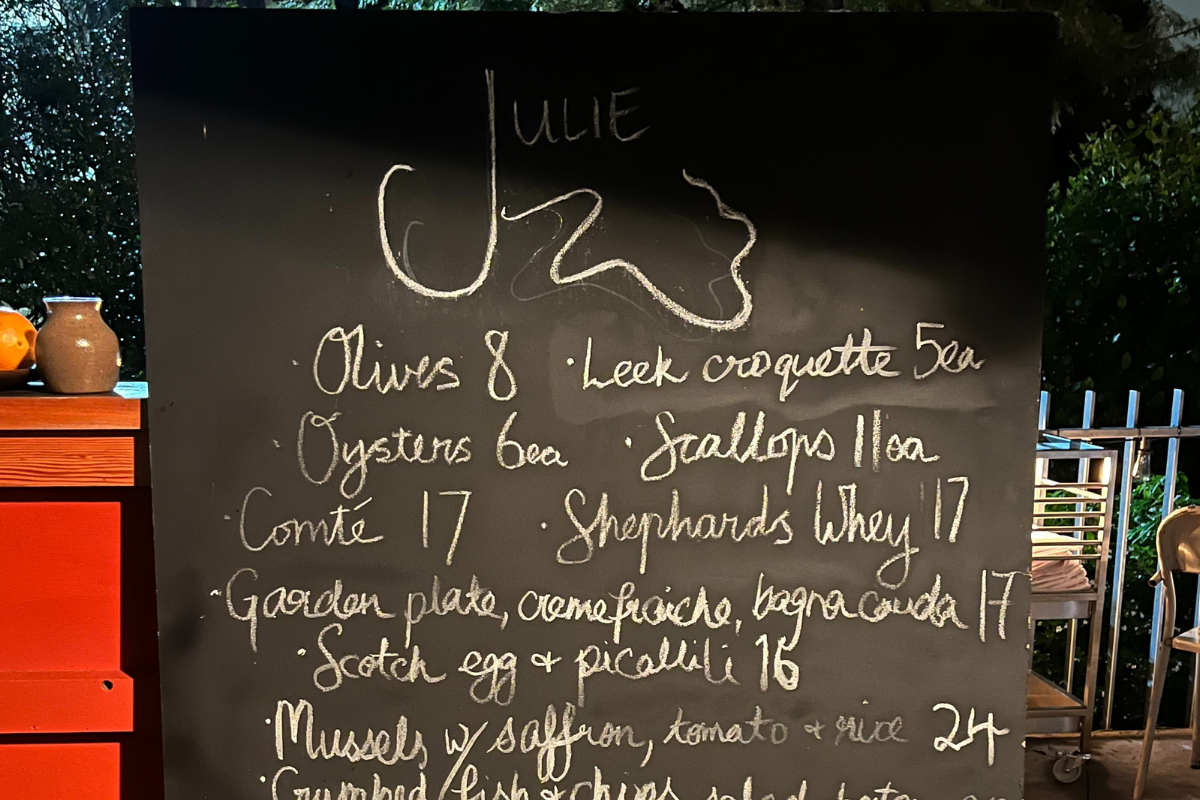 JULIE
· Olives 8 · Leek croquette 5ea
· Oysters 6ea · Scallops 11ea
· Comté 17 · Shephards Whey 17
· Garden plate, creme fraiche, bagna cauda 17
· Scotch egg + picallili 16
· Mussels w/ saffron, tomato + rice 24
· Crumbed fish + chips, salad